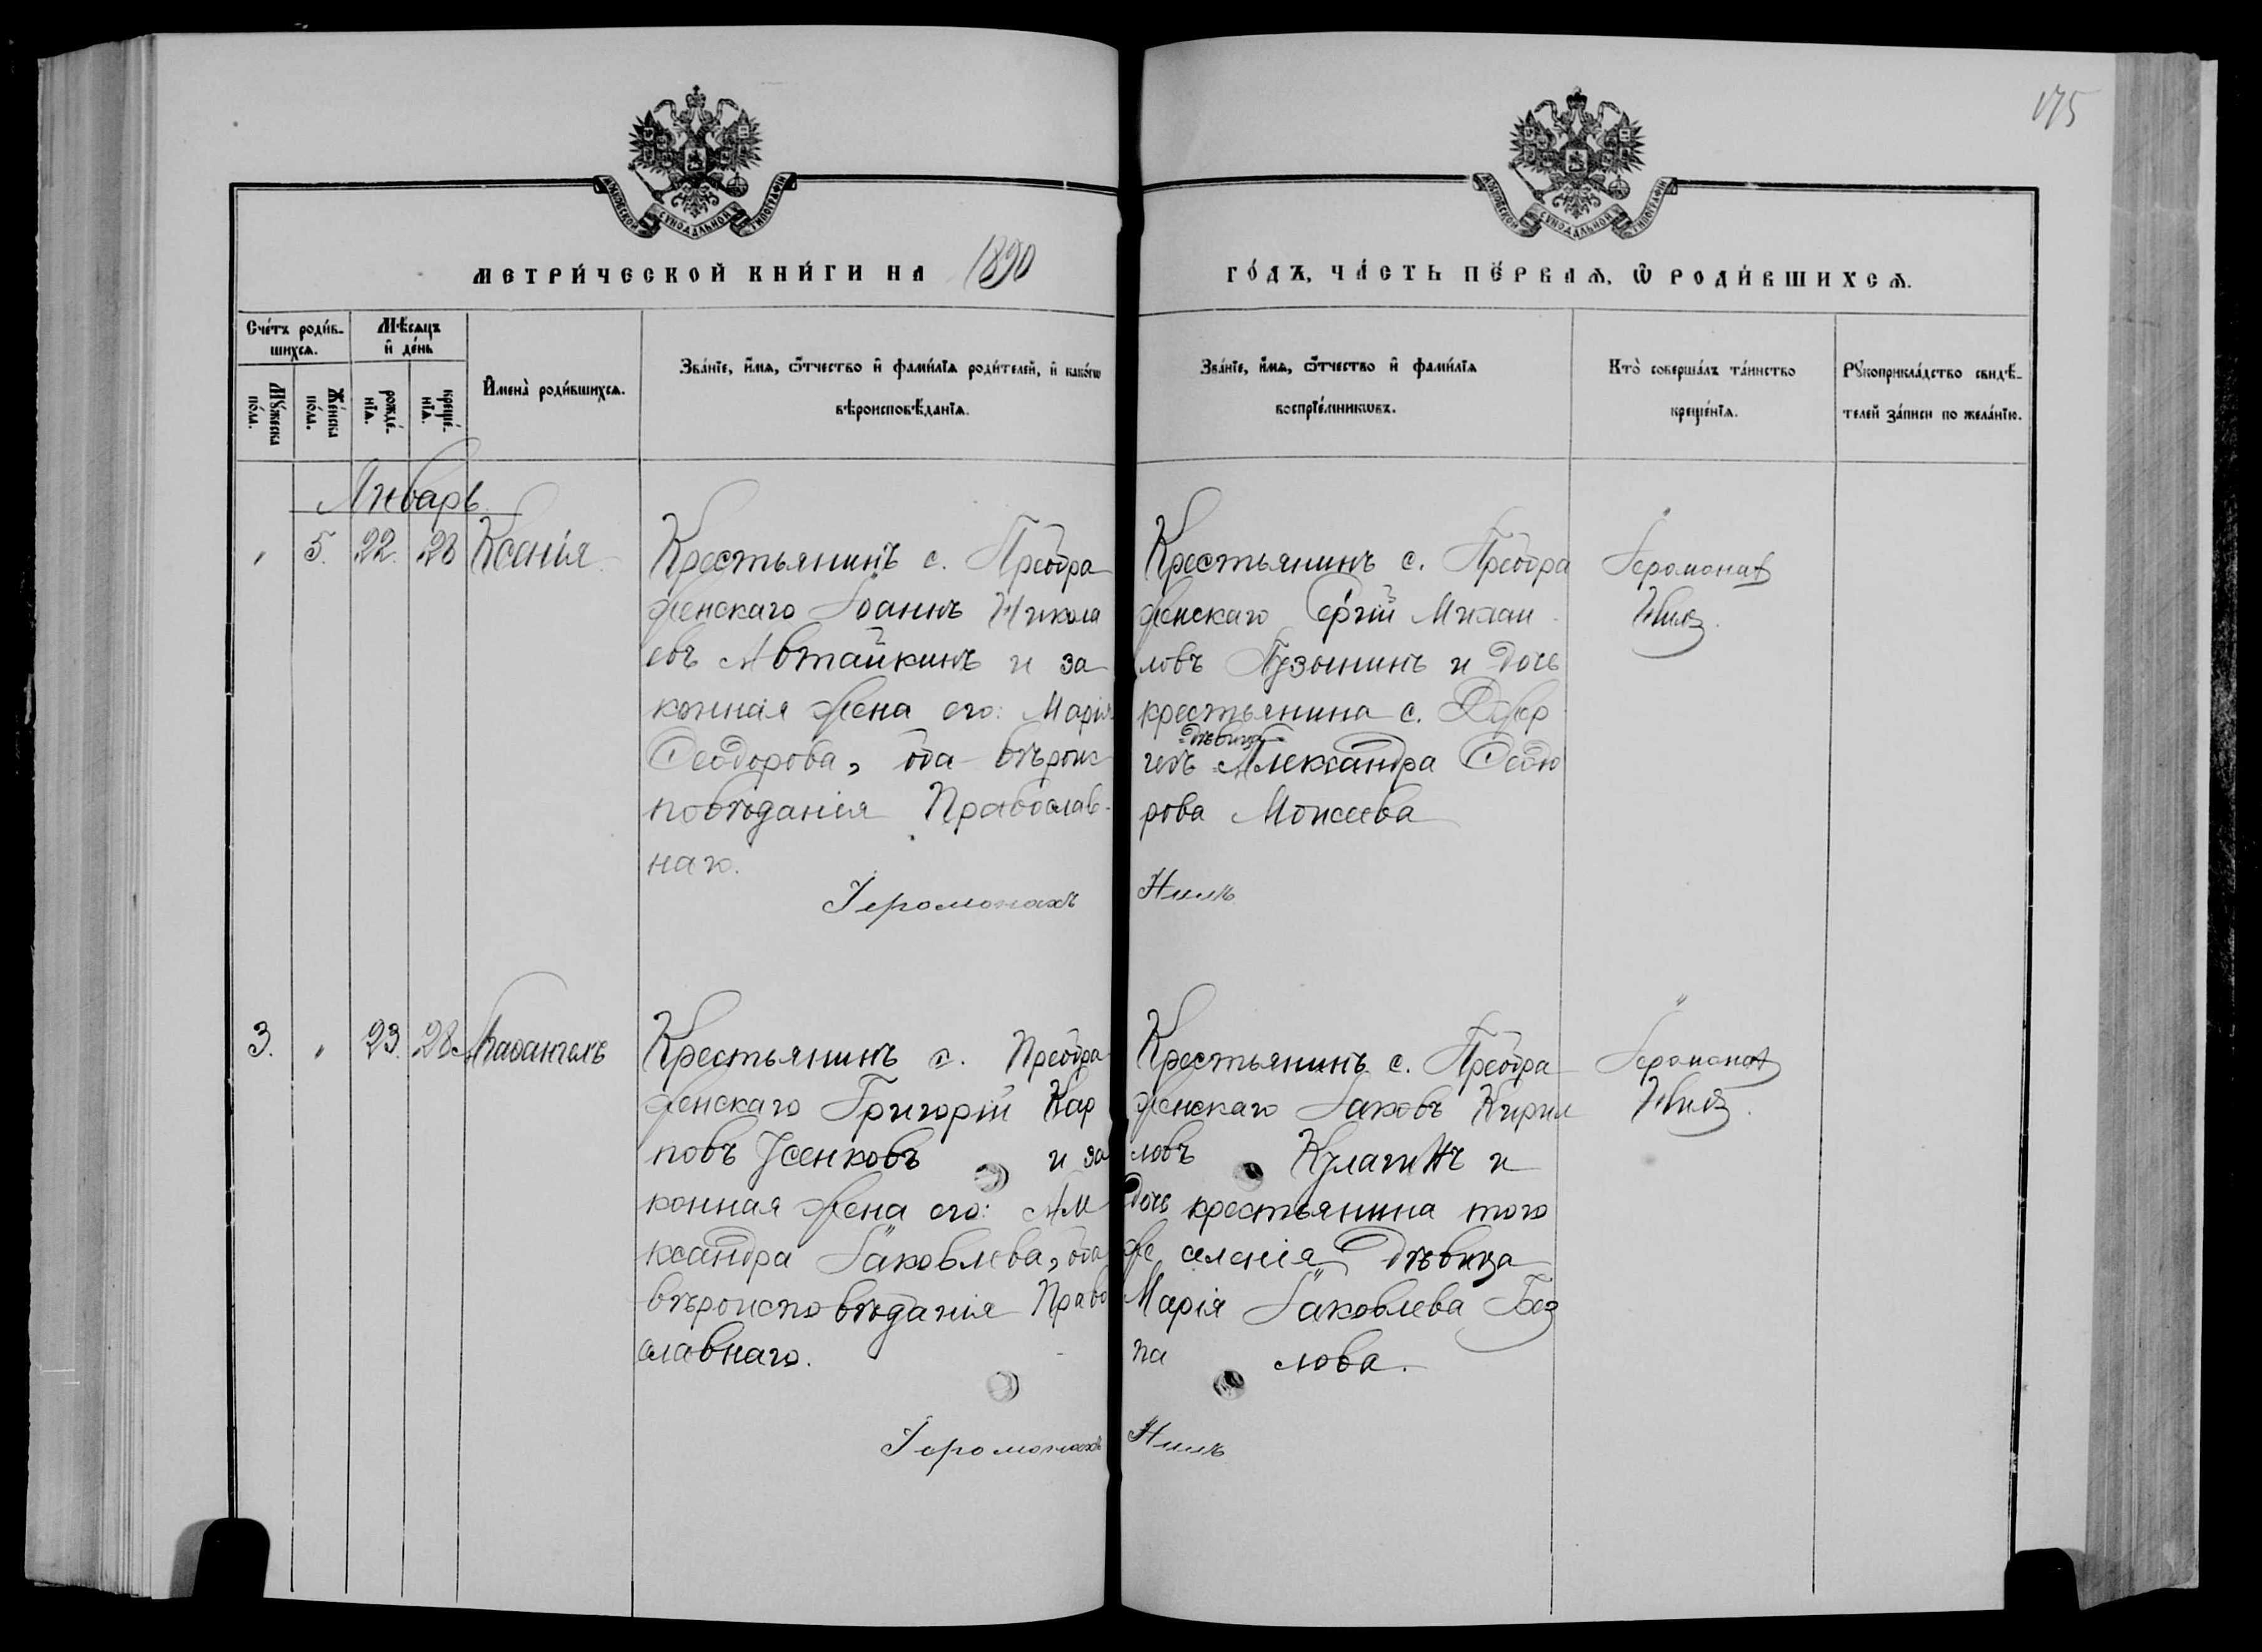 175
МОСКОВСКОЙ СУНОДАЛЬНОЙ ТИПОГРАФІИ
МОСКОВСКОЙ СУНОДАЛЬНОЙ ТИПОГРАФІИ
МЕТРИ́ЧЕСКОЙ КНИ́ГИ НА 1890
ГО́ДЪ, ЧА́СТЬ ПЕ́РВАѦ, Ѡ҆ РОДИ́ВШИХСѦ.
Сче́тъ роди́в-
шихсѧ.
Мꙋ́жеска
по́ла.
Же́нска
по́ла.
Мѣ́сѧцъ
и҆ де́нь
рожде́-
нїѧ.
креще́-
нїѧ.
И҆мена̀ роди́вшихсѧ.
Зва́нїе, и҆́мѧ, ѻ҆́тчество и҆ фами́лїѧ роди́телей, и҆ како́гѡ
вѣроисповѣ́данїѧ.
Зва́нїе, и҆́мѧ, ѻ҆́тчество и҆ фами́лїѧ
воспрїе́мникѡвъ.
Кто̀ соверша́лъ та́инство
креще́нїѧ.
Рꙋкоприкла́дство свидѣ́-
телей за́писи по жела́нїю.
Январь
" 5. 22. 28 Ксенія
Крестьянинъ с. Преобра
женскаго Іоаннъ Никола
евъ Автайкинъ и за
конная жена его: Марія
Ѳеодорова, оба вѣроис
повѣданія Православ-
наго.
Іеромонахъ
Крестьянинъ с. Преобра
женскаго Сергій Михаи
ловъ Пузынинъ и дочь
крестьянина с.
дѣвица
Александра Ѳеодо
рова Моисеева
Нилъ
Іеромонахъ
Нилъ.
3. " 23. 28
Крестьянинъ с. Преобра
женскаго Григорій Кар
повъ Усенковъ и за
конная жена его: Але
ксандра Іаковлева, оба
вѣроисповѣданія Право
славнаго.
Іеромонахъ
Крестьянинъ с. Преобра
женскаго Іаковъ Кирил
ловъ Кулагинъ и
дочь крестьянина того
же селенія дѣвица
Марія Іаковлева Без
па лова.
Нилъ
Іеромонахъ
Нилъ.